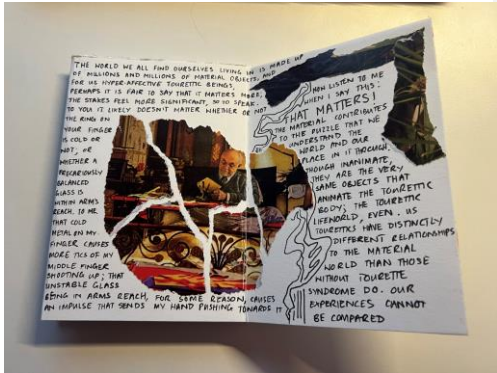 THE WORLD WE ALL FIND OURSELVES LIVING IN IS MADE UP
OF MILLIONS AND MILLIONS OF MATERIAL OBJECTS, AND
FOR US HYPER-AFFECTIVE TOURETTIC BEINGS,
PERHAPS IT IS FAIR TO SAY THAT IT MATTERS MORE;
THE STAKES FEEL MORE SIGNIFICANT, SO TO SPEAK.
TO YOU IT LIKELY DOESN'T MATTER WHETHER OR NOT
THE RING ON
YOUR FINGER
IS COLD OR
NOT, OR
WHETHER A
PRECARIOUSLY
BALANCED
GLASS IS
WITHIN ARMS
REACH. TO ME,
THAT COLD
METAL ON MY
FINGER CAUSES
MORE TICS OF MY
MIDDLE FINGER
SHOOTING UP; THAT
UNSTABLE GLASS
BEING IN ARMS REACH, FOR SOME REASON, CAUSES
AN IMPULSE THAT SENDS MY HAND PUSHING TOWARDS IT
NOW LISTEN TO ME
WHEN I SAY THIS:
THAT MATTERS!
THE MATERIAL CONTRIBUTES
TO THE PUZZLE THAT WE
UNDERSTAND THE
WORLD AND OUR
PLACE IN IT THROUGH.
THOUGH INANIMATE,
THEY ARE THE VERY
SAME OBJECTS THAT
ANIMATE THE TOURETTIC
BODY; THE TOURETTIC
LIFEWORLD, EVEN. US
TOURETTICS HAVE DISTINCTLY
DIFFERENT RELATIONSHIPS
TO THE MATERIAL
WORLD THAN THOSE
WITHOUT TOURETTE
SYNDROME DO. OUR
EXPERIENCES CANNOT
BE COMPARED